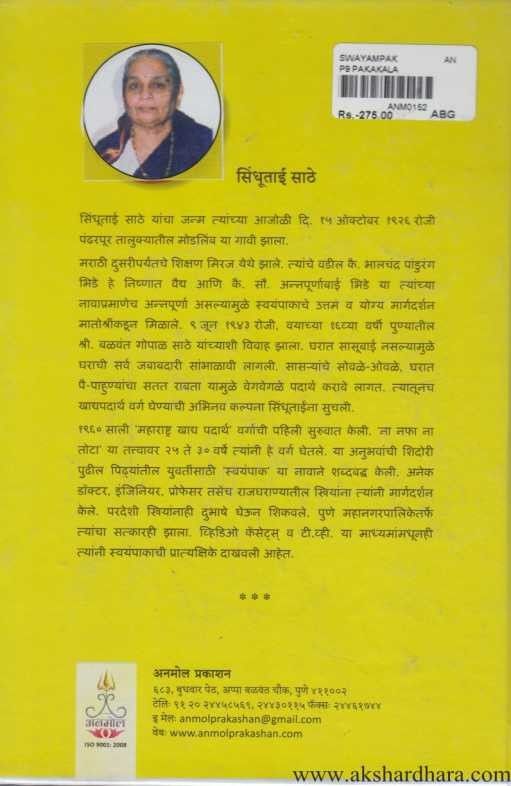 SWAYAMPAK AN
P9 PAKAKALA
ANM0152
Rs.-275.00 ABG
सिंधूताई साठे
सिंधूताई साठे यांचा जन्म त्यांच्या आजोळी दि. १५ ओक्टोबर १९२६ रोजी
पंढरपूर तालुक्यातील मोडलिंब या गावी झाला.
मराठी दुसरीपर्यतचे शिक्षण मिरज येथे झाले. त्यांचे वडील कै. भालचंद्र पांडुरंग
भिडे हे निष्णात वैद्य आणि कै. सौ. अन्नपूर्णाबाई भिडे या त्यांच्या
नावाप्रमाणेच अन्नपूर्णा असल्यामुळे स्वयंपाकाचे उत्तम व योग्य मार्गदर्शन
मातोश्रींकडून मिळाले. ९ जून १९४३ रोजी, वयाच्या १६व्या वर्षी पुण्यातील
श्री. बळवंत गोपाळ साठे यांच्याशी विवाह झाला. घरात सासूबाई नसल्यामुळे
घराची सर्व जबाबदारी सांभाळावी लागली. सासऱ्यांचे सोवळे-ओवळे, घरात
पै-पाहुण्यांचा सतत राबता यामुळे वेगवेगळे पदार्थ करावे लागत. त्यातूनच
खाद्यपदार्थ वर्ग घेण्याची अभिनव कल्पना सिंधूताईंना सुचली.
१९६० साली 'महाराष्ट्र खाद्य पदार्थ' वर्गाची पहिली सुरुवात केली. 'ना नफा ना
तोटा' या तत्त्वावर २५ ते ३० वर्षे त्यांनी हे वर्ग घेतले. या अनुभवांची शिदोरी
पुढील पिढ्यांतील युवतींसाठी 'स्वयंपाक' या नावाने शब्दबद्ध केली. अनेक
डॉक्टर, इंजिनियर, प्रोफेसर तसेच राजघराण्यातील स्त्रियांना त्यांनी मार्गदर्शन
केले. परदेशी स्त्रियांनाही दुभाषे घेऊन शिकवले. पुणे महानगरपालिकेतर्फे
त्यांचा सत्कारही झाला. व्हिडिओ कॅसेट्स् व टी.व्ही. या माध्यमांमधूनही
त्यांनी स्वयंपाकाची प्रात्यक्षिके दाखवली आहेत.
* * *
अनमोल
ISO 9001: 2008
अनमोल प्रकाशन
६८३, बुधवार पेठ, अप्पा बळवंत चौक, पुणे ४११००२
टेलिः ९१ २० २४४५८५६९, २४४३०११५ फॅक्सः २४४६१७४४
इ मेलः anmolprakashan@gmail.com
वेबः www.anmolprakashan.com
www.akshardhara.com